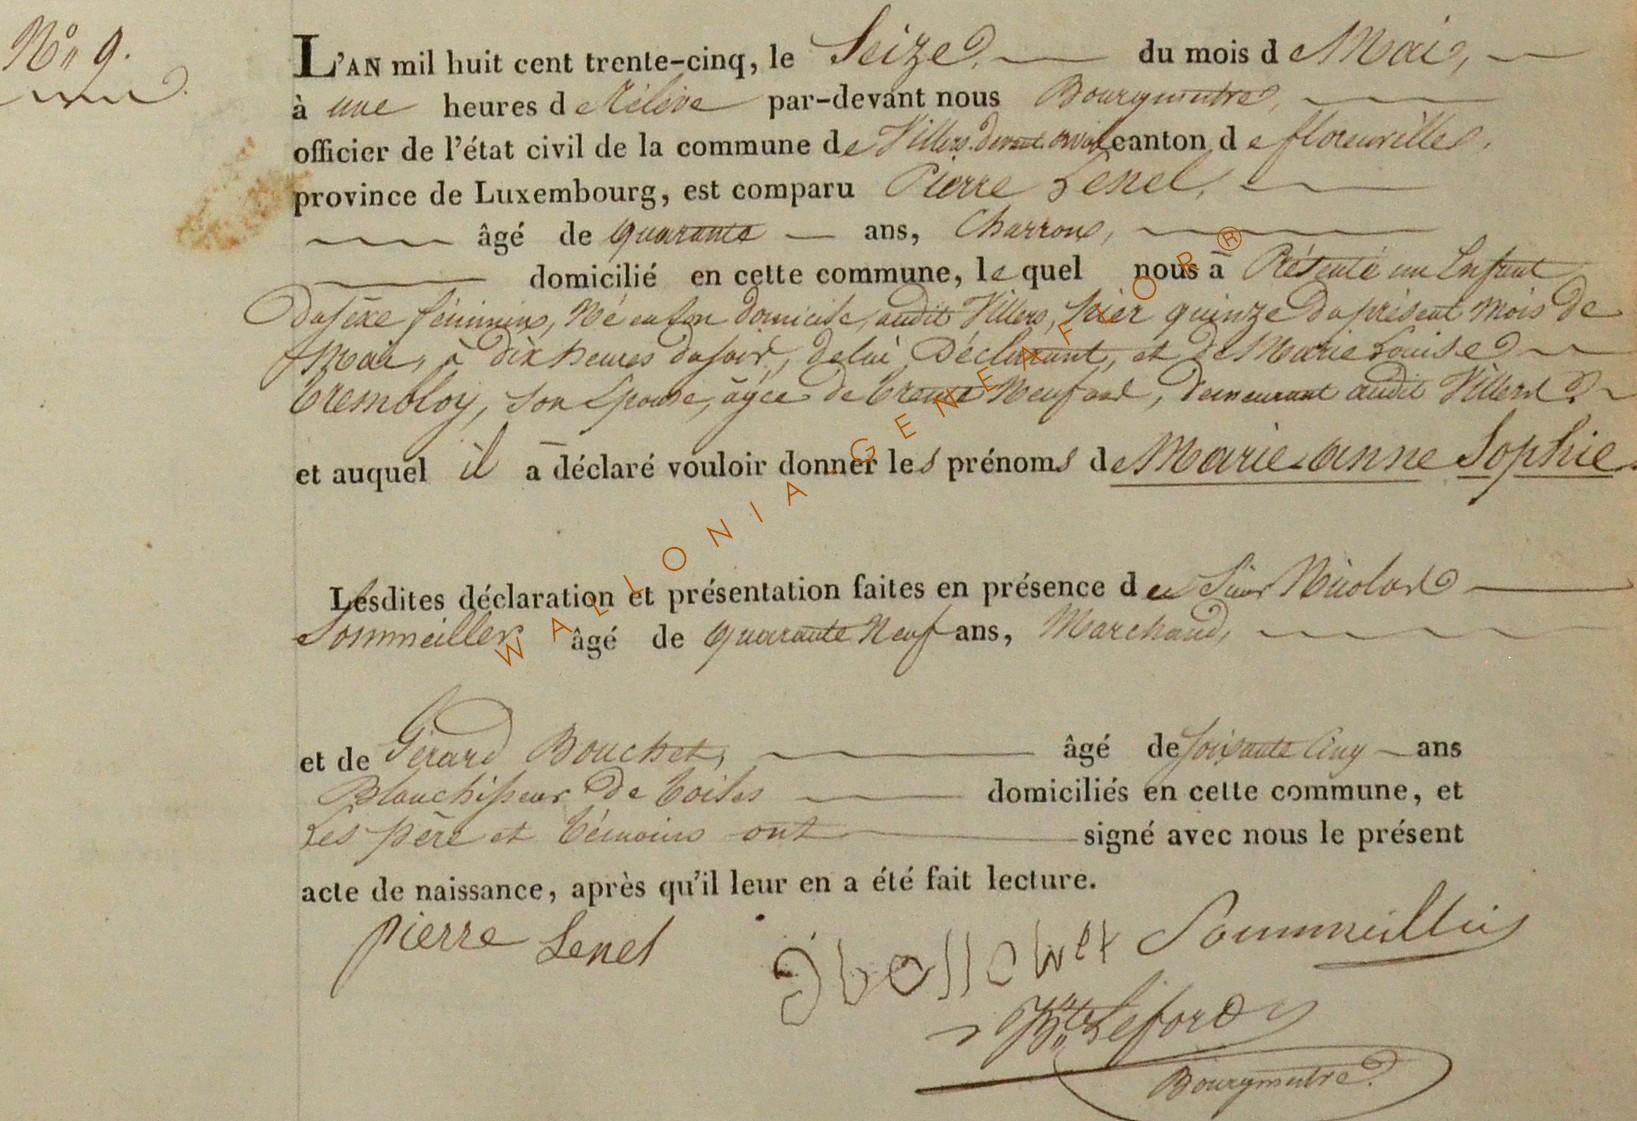 N° 9.
L'AN mil huit cent trente-cinq, le Seize du mois de Mai,
à une heures de Rélévé par-devant nous Bourgmestre,
officier de l'état civil de la commune de Villers devant orval canton de florenville,
province de Luxembourg, est comparu Pierre Lenel,
âgé de quarante ans, Charron,
domicilié en cette commune, lequel nous à Présenté un Enfant
Du sèxe féminin, Né en son domicile, audit Villers, hier quinze du présent mois de
Mai, à dix heures du soir, de lui Déclarant, et de Marie Louise
Trembloy, son Epouse, agée de trente Neuf ans, demeurant audit Villers
et auquel il a déclaré vouloir donner les prénoms de Marie anne Sophie.
Lesdites déclaration et présentation faites en présence de Nicolas
Sommeiller âgé de quarante Neuf ans, Marchand,
et de Gérard Bouchet, âgé de soixante Cinq ans
Blanchisseur de toiles domiciliés en cette commune, et
Les père et témoins ont signé avec nous le présent
acte de naissance, après qu'il leur en a été fait lecture.
pierre Lenel
Bourgmestre
WALLONIA GENEAFLOR®